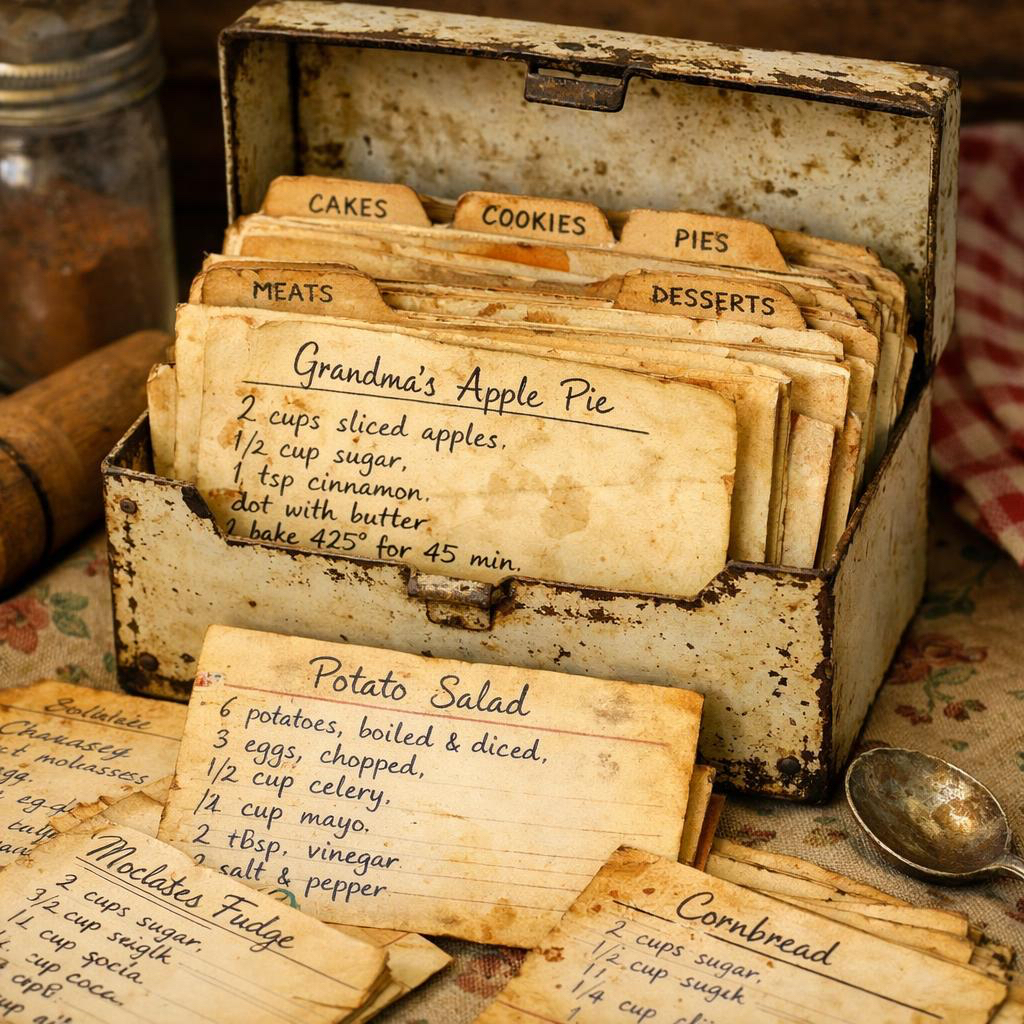 CAKES
COOKIES
PIES
MEATS
DESSERTS
Grandma's Apple Pie
2 cups sliced apples,
1/2 cup sugar,
1 tsp cinnamon.
dot with butter
2 bake 425° for 45 min.
Potato Salad
6 potatoes, boiled & diced,
3 eggs, chopped,
1/2 cup celery,
1/4 cup mayo.
2 tbsp. vinegar
2 salt & pepper
Moclates Fudge
2 cups sugar,
3/2 cup
cup
cup coca.
cup
Cornbread
2 cups sugar,
1/2 cup sugek
11
1/4 cup